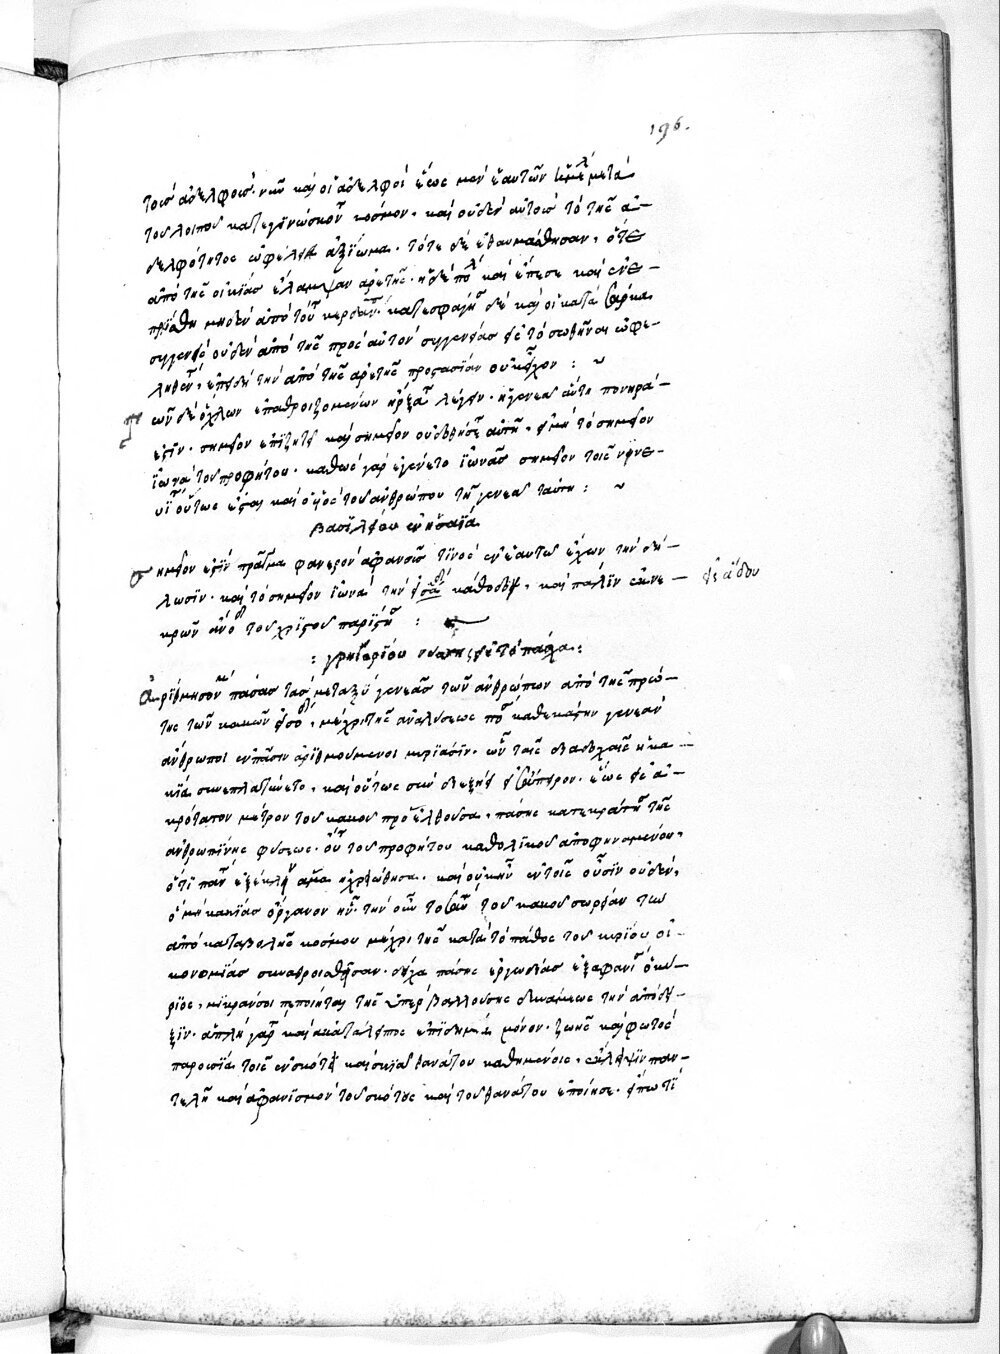 196.
τοῖς ἀδελφοῖς· καὶ οἱ ἀδελφοὶ ἕως μὲν ἑαυτῶν μετὰ
τοῦ λοιποῦ κατεγίνωσκον κόσμου, καὶ οὐδὲν αὐτοῖς τὸ τῆς ἀ-
δελφότητος ὠφέλει ἀξίωμα. τότε δὲ ἐθαυμάσθησαν, ὅτε
ἀπὸ τῆς οἰκείας ἔλαμψαν ἀρετῆς. καὶ ἔπεσε καὶ ἐνε-
πρήσθη μηδὲν ἀπὸ τοῦ κερδάν. κατεσφάγησαν δὲ καὶ οἱ κατὰ σάρκα
συγγενεῖς οὐδὲν ἀπὸ τῆς πρὸς αὐτὸν συγγενείας εἰς τὸ σωθῆναι ὠφε-
ληθέντες, ἐπειδὴ τὴν ἀπὸ τῆς ἀρετῆς προστασίαν οὐκ εἶχον :~
τῶν δὲ ὄχλων ἐπαθροιζομένων ἤρξατο λέγειν. ἡ γενεὰ αὕτη πονηρά
ἐστιν. σημεῖον ἐπιζητεῖ καὶ σημεῖον οὐ δοθήσεται αὐτῇ, εἰ μὴ τὸ σημεῖον
ἰωνᾶ τοῦ προφήτου. καθὼς γὰρ ἐγένετο ἰωνᾶς σημεῖον τοῖς νινευ-
οὕτως ἔσται καὶ ὁ υἱὸς τοῦ ἀνθρώπου τῇ γενεᾷ ταύτῃ :~
βασιλείου ἐν ἡσαΐᾳ
σημεῖον ἐστὶν πρᾶγμα φανερὸν ἀφανοῦς τινὸς ἐν ἑαυτῷ ἔχων τὴν δή-
λωσιν. καὶ τὸ σημεῖον ἰωνᾶ τὴν κάθοδον, καὶ πάλιν ἐκ νε- εἰς ἅδου
κρῶν ἄνοδον τοῦ χριστοῦ παρίστησι :
: γρηγορίου νύσσης εἰς τὸ πάσχα :
ἀρίθμησον πάσας τὰς μεταξὺ γενεὰς τῶν ἀνθρώπων ἀπὸ τῆς πρώ-
της τῶν κακῶν εἰσόδου, μέχρι τῆς ἀναλύσεως πόσοι καθ' ἑκάστην γενεὰν
ἄνθρωποι ἐν πόσαις ἀριθμούμενοι μυριάσιν. ὧν ταῖς διαδοχαῖς ἡ κα-
κία συνεπλατύνετο, καὶ οὕτως ἕως εἰς ἀ-
κρότατον μέτρον τοῦ κακοῦ προελθοῦσα, πάσης κατεκράτησε τῆς
ἀνθρωπίνης φύσεως. τοῦ προφήτου καθολικῶς ἀποφηναμένου,
ὅτι πάντες ἐξέκλιναν ἅμα ἠχρειώθησαν. καὶ οὐκ ἦν ἐν τοῖς οὖσιν οὐδέν,
ὃ μὴ κακίας ὄργανον ἦν. τὴν οὖν τοσαύτην τοῦ κακοῦ σωρείαν τὴν
ἀπὸ καταβολῆς κόσμου μέχρι τῆς κατὰ τὸ πάθος τοῦ κυρίου οἰ-
κονομίας συναθροισθεῖσαν. δίχα πάσης ἐργωδίας ἐξαφανίσας ὁ κύ-
ριος, μικρὰν σοὶ πεποίηται τῆς ὑπερβαλλούσης δυνάμεως τὴν ἀπόδει-
ξιν. ἁπλῆ γὰρ καὶ ἀκατάληπτος ἐπιδημία μόνον. ζωῆς καὶ φωτὸς
παρουσία τοῖς ἐν σκότει καὶ σκιᾷ θανάτου καθημένοις, παν-
τελῆ καὶ ἀφανισμὸν τοῦ σκότους καὶ τοῦ θανάτου ἐποίησε. ἐπὶ τί